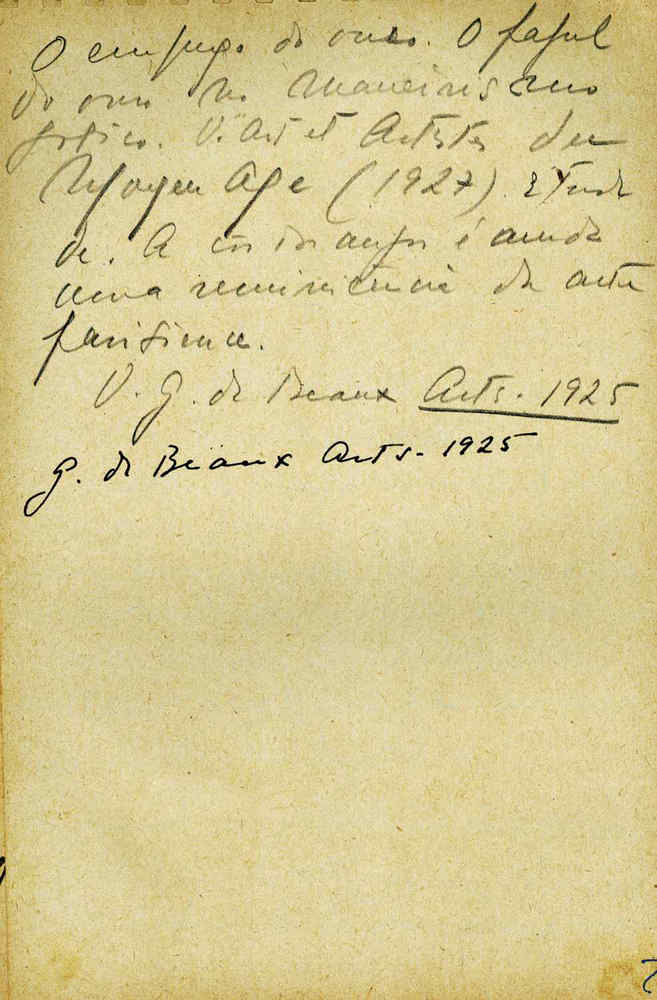 O emprego do ouro. O papel
do ouro no Maneirismo
gótico. V. Art et Artistes du
Moyen Age (1927). Etude
de. A é ainda
uma reminiscencia da arte
parisiense.
V. G. de Beaux Arts. 1925
G. de Beaux Arts. 1925